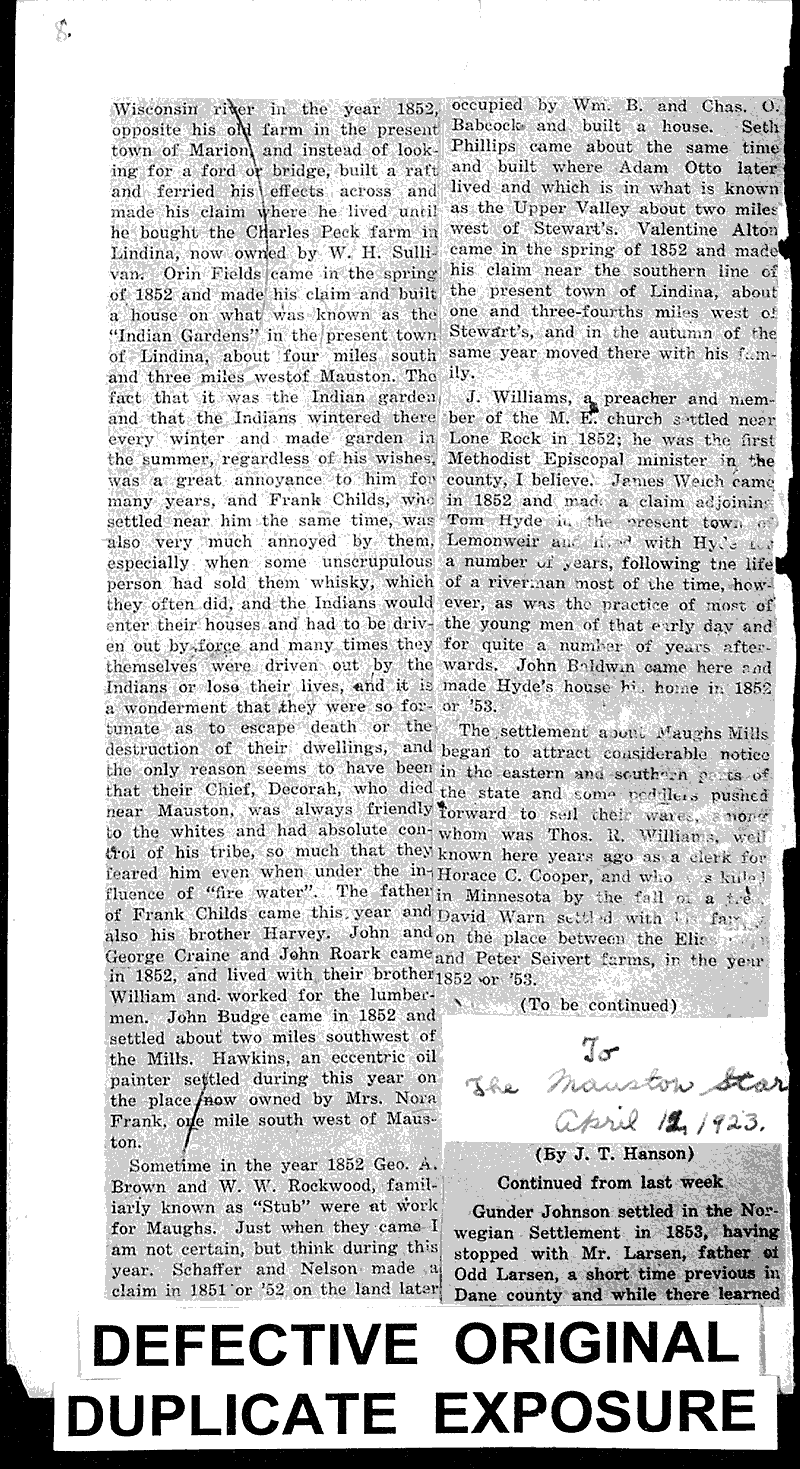 8.
Wisconsin river in the year 1852,
opposite his old farm in the present
town of Marion, and instead of look-
ing for a ford or bridge, built a raft
and ferried his effects across and
made his claim where he lived until
he bought the Charles Peck farm in
Lindina, now owned by W. H. Sulli-
van. Orin Fields came in the spring
of 1852 and made his claim and built
a house on what was known as the
"Indian Gardens" in the present town
of Lindina, about four miles south
and three miles westof Mauston. The
fact that it was the Indian garden
and that the Indians wintered there
every winter and made garden in
the summer, regardless of his wishes,
was a great annoyance to him for
many years, and Frank Childs, who
settled near him the same time, was
also very much annoyed by them,
especially when some unscrupulous
person had sold them whisky, which
they often did, and the Indians would
enter their houses and had to be driv-
en out by force and many times they
themselves were driven out by the
Indians or lose their lives, and it is
a wonderment that they were so for-
tunate as to escape death or the
destruction of their dwellings, and
the only reason seems to have been
that their Chief, Decorah, who died
near Mauston, was always friendly
to the whites and had absolute con-
trol of his tribe, so much that they
feared him even when under the in-
fluence of "fire water". The father
of Frank Childs came this year and
also his brother Harvey. John and
George Craine and John Roark came
in 1852, and lived with their brother
William and worked for the lumber-
men. John Budge came in 1852 and
settled about two miles southwest of
the Mills. Hawkins, an eccentric oil
painter settled during this year on
the place now owned by Mrs. Nora
Frank, one mile south west of Maus-
ton.
Sometime in the year 1852 Geo. A.
Brown and W. W. Rockwood, famil-
iarly known as "Stub" were at work
for Maughs. Just when they came I
am not certain, but think during this
year. Schaffer and Nelson made a
claim in 1851 or '52 on the land later
occupied by Wm. B. and Chas. O.
Babcock and built a house. Seth
Phillips came about the same time
and built where Adam Otto later
lived and which is in what is known
as the Upper Valley about two miles
west of Stewart's. Valentine Alton
came in the spring of 1852 and made
his claim near the southern line of
the present town of Lindina, about
one and three-fourths miles west of
Stewart's, and in the autumn of the
same year moved there with his fam-
ily.
J. Williams, a preacher and mem-
ber of the M. E. church settled near
Lone Rock in 1852; he was the first
Methodist Episcopal minister in the
county, I believe. James Weich came
in 1852 and made a claim adjoining
Tom Hyde in the present town of
Lemonweir and lived with Hyde for
a number of years, following the life
of a riverman most of the time, how-
ever, as was the practice of most of
the young men of that early day and
for quite a number of years after-
wards. John Baldwin came here and
made Hyde's house his home in 1852
or '53.
The settlement about Maughs Mills
began to attract considerable notice
in the eastern and southern parts of
the state and some peddlers pushed
forward to sell their wares, among
whom was Thos. R. Williams, well
known here years ago as a clerk for
Horace C. Cooper, and who was killed
in Minnesota by the fall of a tree.
David Warn settled with his family
on the place between the Elias
and Peter Seivert farms, in the year
1852 or '53.
(To be continued)
To
The Mauston Star
April 12, 1923.
(By J. T. Hanson)
Continued from last week
Gunder Johnson settled in the Nor-
wegian Settlement in 1853, having
stopped with Mr. Larsen, father of
Odd Larsen, a short time previous in
Dane county and while there learned
DEFECTIVE ORIGINAL
DUPLICATE EXPOSURE